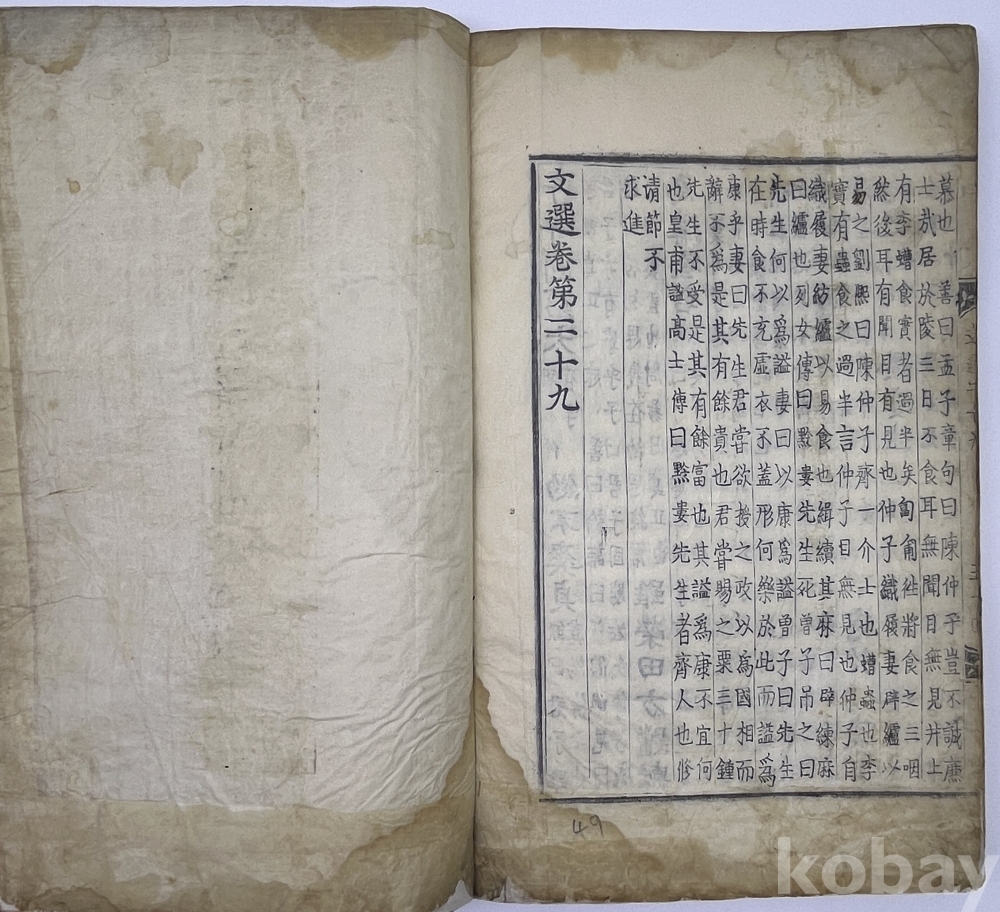 慕也 善曰孟子章句曰陳仲子豈不誠廉
士哉居於陵三日不食耳無聞目無見井上
有李螬食實者過半矣匍匐往將食之三咽
然後耳有聞目有見也仲子織履妻辟纑以
易之劉熙曰陳仲子齊一介士也螬蟲也李
實有蟲食之過半言仲子目無見也仲子自
織履妻紡纑以易食也緝續其麻曰辟練麻
曰纑也列女傳曰黔婁先生死曾子吊之曰
先生何以爲謚妻曰以康爲謚曾子曰先生
在時食不充虛衣不蓋形何樂於此而謚爲
康乎妻曰先生君甞欲授之政以爲國相而
辭不爲是其有餘貴也君甞賜之粟三十鍾
先生不受是其有餘富也其謚爲康不宜何
也皇甫謐高士傳曰黔婁先生者齊人也修
请節不
求進
文選卷第二十九
49
kobay